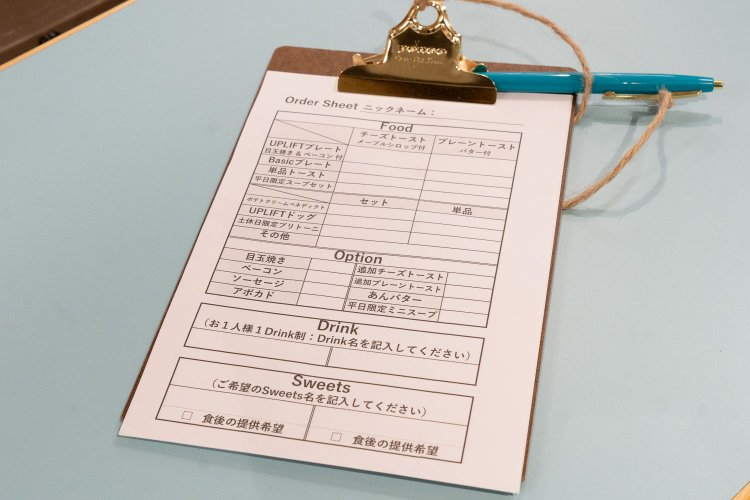 Order Sheet ニックネーム：
Food
チーズトースト
メープルシロップ付
プレーントースト
バター付
UPLIFTプレート
目玉焼き＆ベーコン付
Basicプレート
単品トースト
平日限定スープセット
セット
単品
ポテトクリームベネディクト
UPLIFTドッグ
土休日限定ブリトーニ
その他
Option
目玉焼き
追加チーズトースト
ベーコン
追加プレーントースト
ソーセージ
あんバター
アボカド
平日限定ミニスープ
Drink
（お１人様１Drink制：Drink名を記入してください）
Sweets
（ご希望のSweets名を記入してください）
□ 食後の提供希望
□ 食後の提供希望